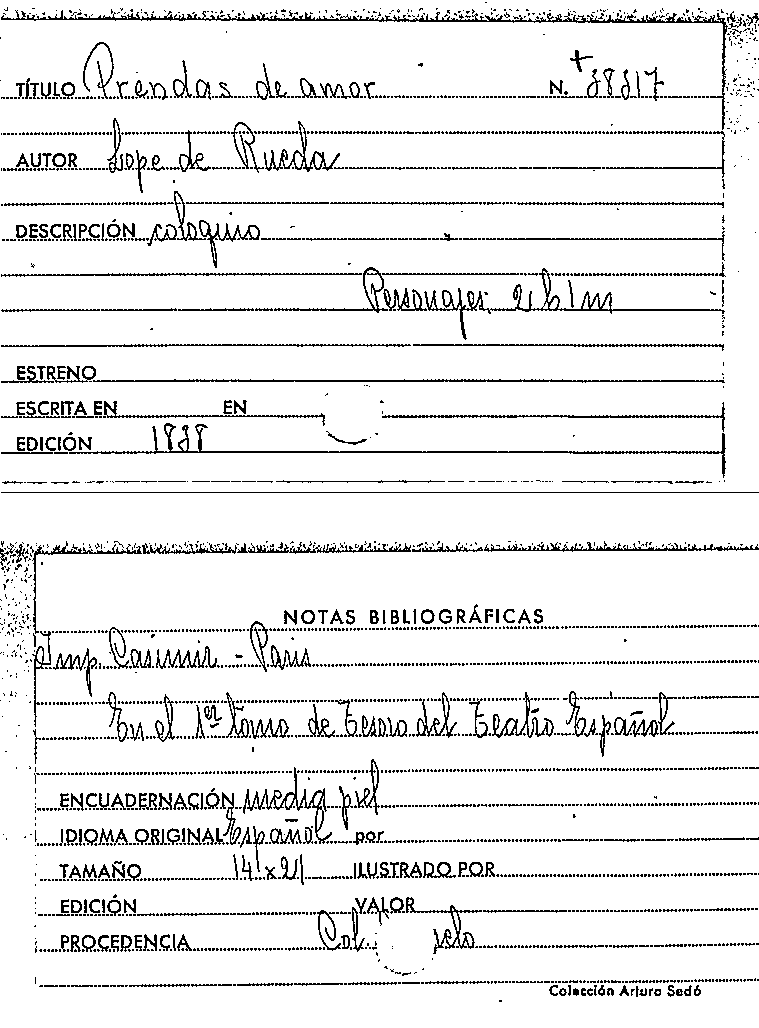 TÍTULO Prendas de amor N. +38317
AUTOR Lope de Rueda
DESCRIPCIÓN coloquio
Personajes 2 h 1 m
ESTRENO
ESCRITA EN EN
EDICIÓN 1838
NOTAS BIBLIOGRÁFICAS
Imp. Casimir - Paris
En el 1er tomo de Tesoro del Teatro Español
ENCUADERNACIÓN media piel
IDIOMA ORIGINAL Español por
TAMAÑO 14'x21 ILUSTRADO POR
EDICIÓN VALOR
PROCEDENCIA Col.
Colección Arturo Sedó